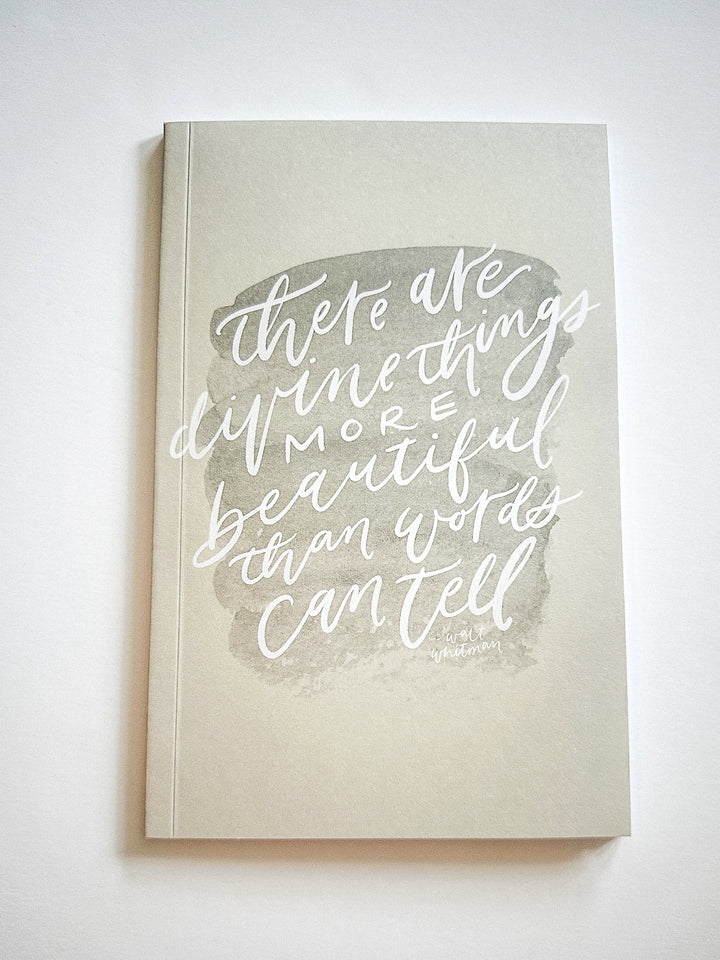 there are
divine things
MORE
beautiful
than words
can tell
walt
whitman